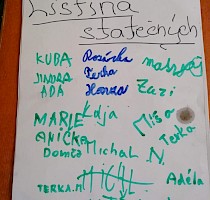 Listina
statečných
KUBA Rozárka matyáš
JINDRA Terka
ADA Honza Zazi
MARIE Kája Míša
ANIČKA Terka
Domča Michal N.
TERKA.M MICHL Adéla